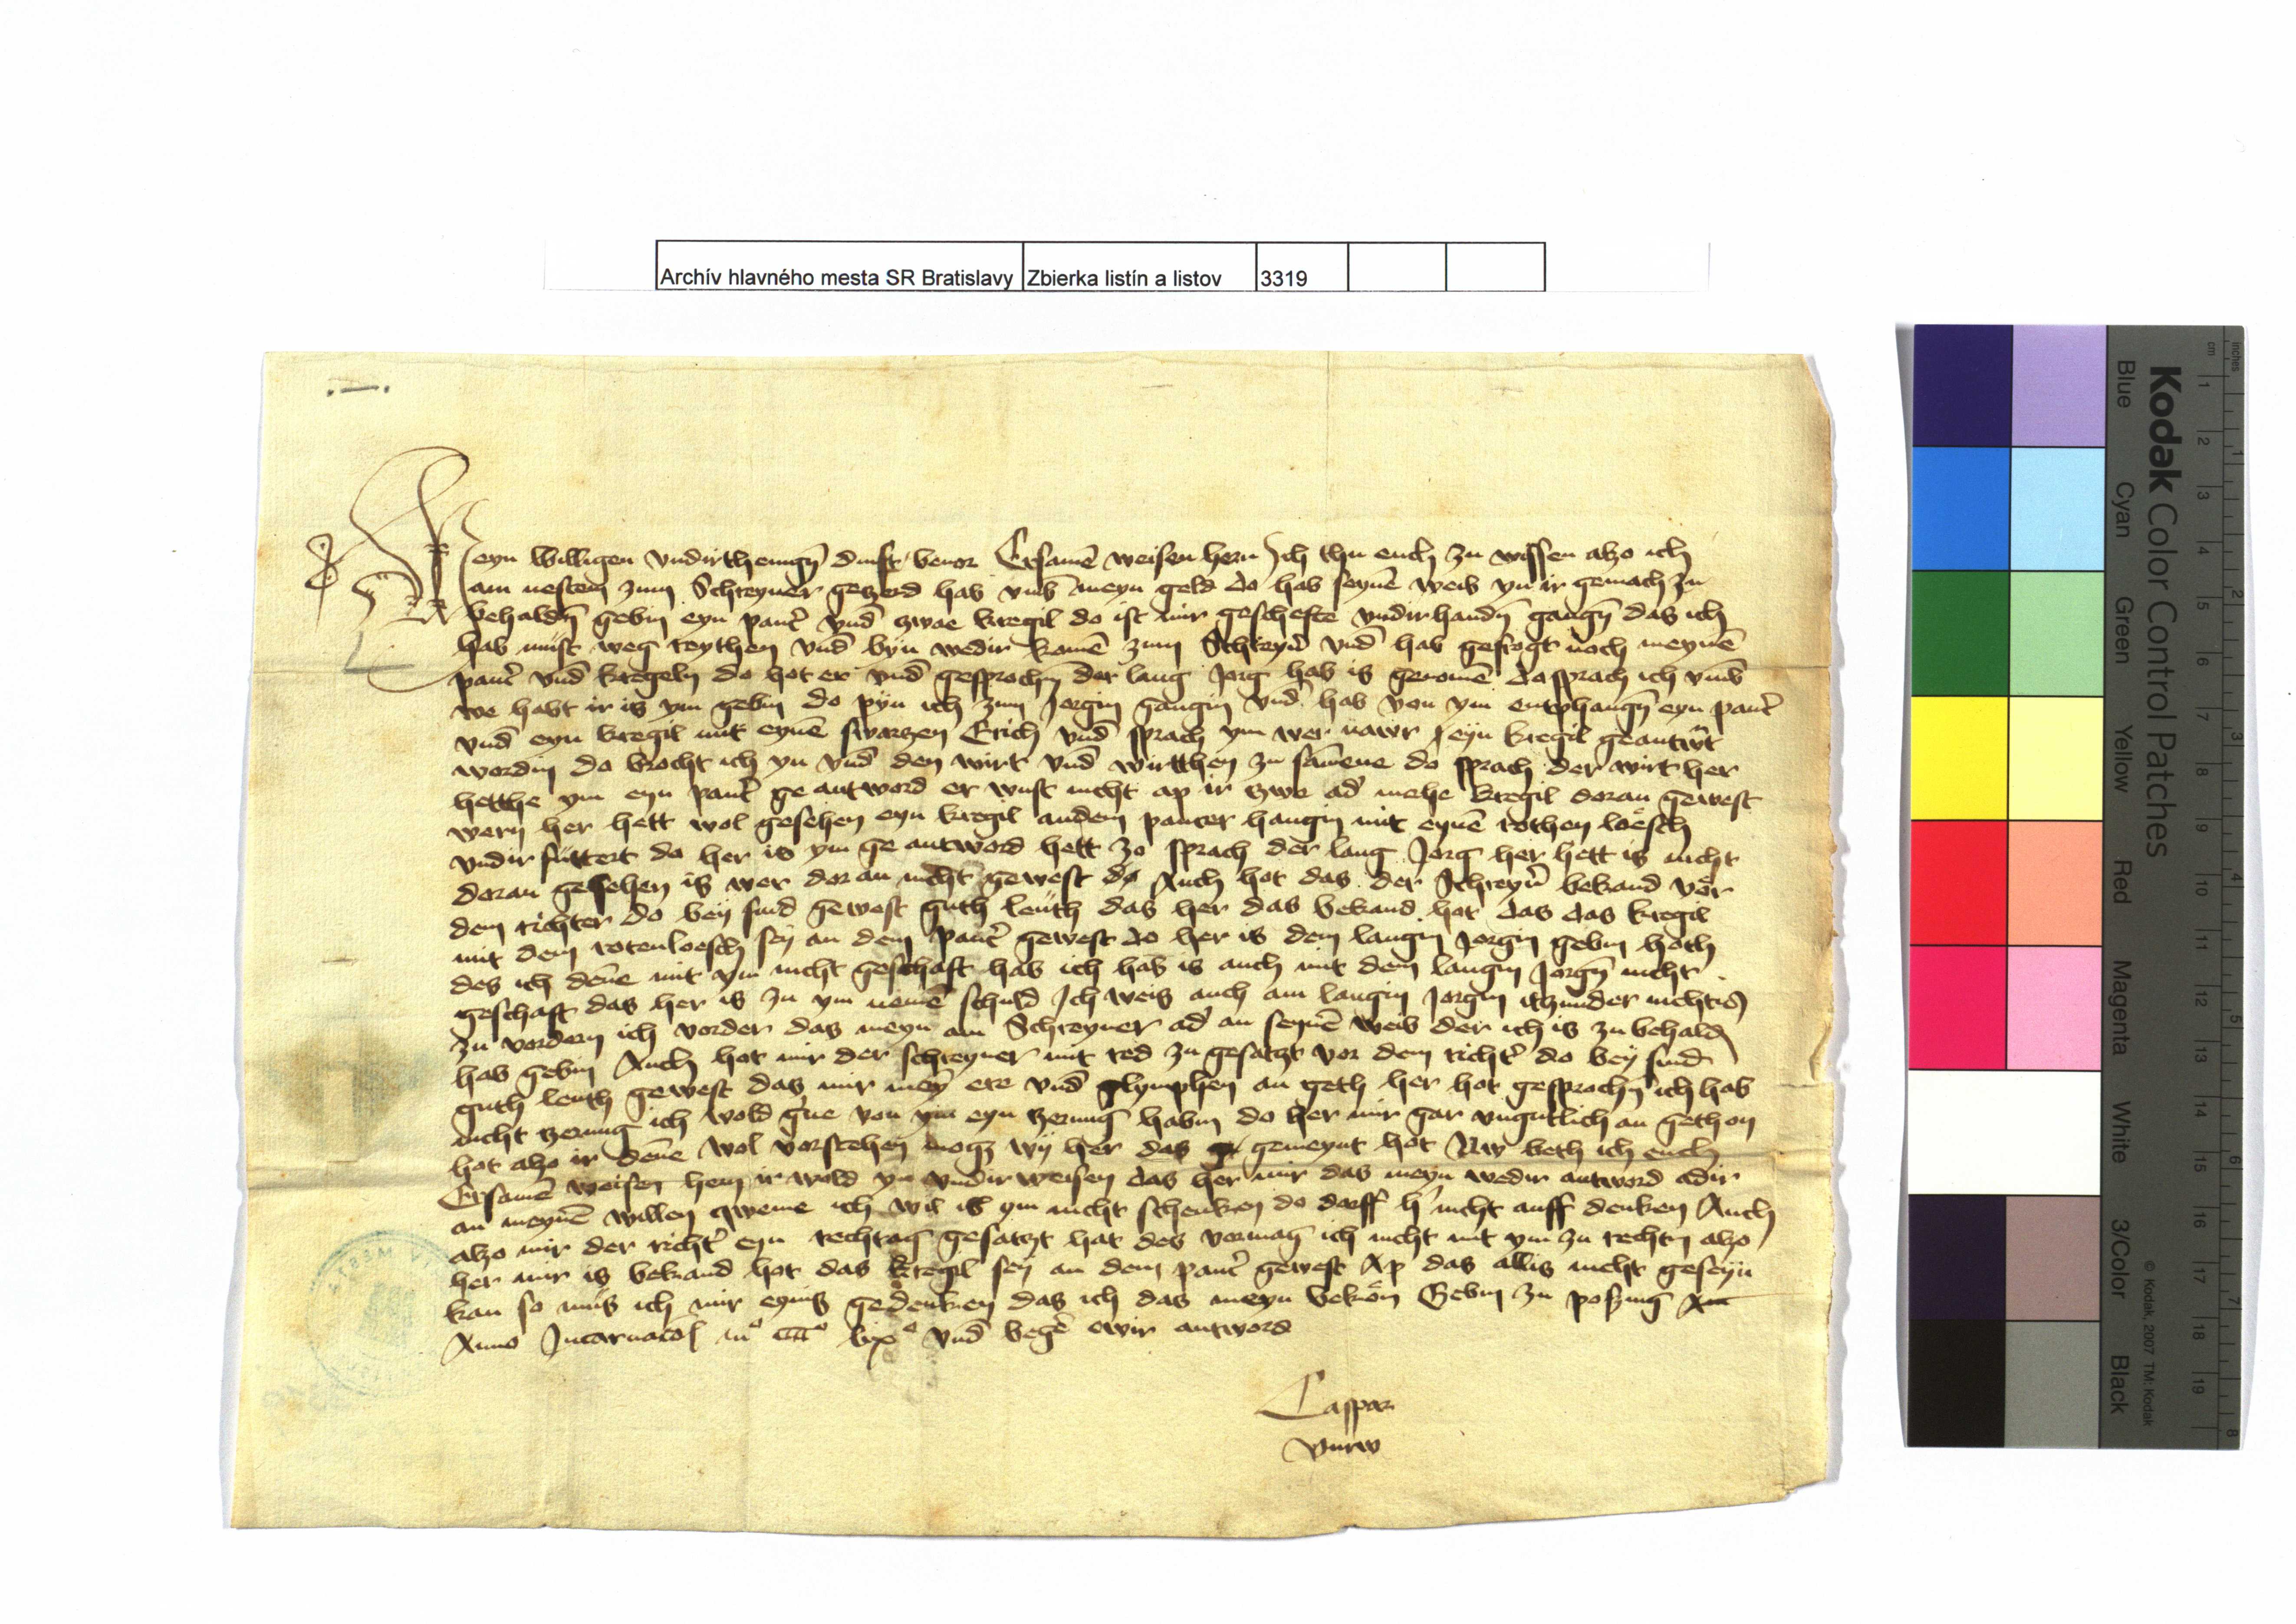 Archív hlavného mesta SR Bratislavy Zbierka listín a listov 3319
Meyn willigen vndirthenigñ dinst bevor Ersamē weisen hern Ich thu euch zu wissen alzo ich
am nesten zum Schreyner geczerd hab vmb meyn geld do hab seynē weib yn ir gemach zu
behaldñ gebin eyn pant̉ vnd̄ zwae kregil do ist mir gescheffte vndirhandñ gangñ das ich
hab must weg reythen vnd̄ byn wedir komē zum Schreyn̉ vnd̄ hab gefrogt noch meynē
pant̉ vnd̄ kregeln do hot er vnd̄ gesprochñ der lang Jorg hab is genomē do sprach ich vmb
we habt ir is ym gebin do pyn ich zum Jorgin gangin vnd̄ hab von ym entphangñ eyn pant̉
vnd̄ eyn kregil mit eynē swarzen Erich vnd̄ sprach ym wer nawr eyn kregil geantw̉t
wordin do brocht ich yn vnd̄ den wirt vnd̄ wirtthen zu samene do sprach der wirt her
hetthe ym eyn pant̉ ge antword er wust nicht ap ir zwe ad̉ mehe kregil doran gewest
wern her hett wol gesehen eyn kregil andem panczer hangin mit eynē rothen loesch
vndir futtert do her is ym ge antword hett zo sprach der lang Jorg her hett is nicht
doran gesehen is wer doran nicht gewest do Auch hot das der Schreyn̉ bekand vor
dem richter do bey sind gewest guth leuth das her das bekand hot das das kregil
mit dem rotenloesch sey an dem pant̉ gewest do her is dem langin Jorgin gebin hoth
des ich deñe mit ym nicht geschaft hab ich hab is auch mit dem langin Jorgñ nicht
geschaft das her is zu ym nemē schuld Ich weis auch am langin Jorgin itzunder nichtis
zu vordern ich vorder das meyn am Schreyner ad̉ an seynē weib der ich is zu behald
hab gebin Auch hot mir der schreyner mit red zu gesatzt vor dem richt̉ do bey sind
guth leuth gewest das mir meȳ ere vnd̄ glymphen an geth her hot gesprochñ ich hab
nicht zerung ich wold g̉ne von ym eyn zerung habin do her mir gar vngutlich an gethon
hot alzo ir deñe wol vorstehen mogt wy her das gemeynt hot Nw beth ich euch
Ersamē weisen hern ir wold yn vndirweisen das her mir das meyn wedir antword adir
an meynē willen qweme ich wil is ym nicht schenken do dorff h̉ nicht auff denken Auch
alzo mir der richt̉ eyn rechtag gesatzt hat des vormag ich nicht mit ym zu rechtn alzo
her mir is bekand hot das kregil sey an dem pant̉ gewest Ap das allis nicht geseyn
kan so mus ich mir eyns gedenken das ich das meyn bekom̄ Gebin zu posing
Anno Incarnacōī m° cccc° lix° vnd̄ begē ewir antword
Caspar